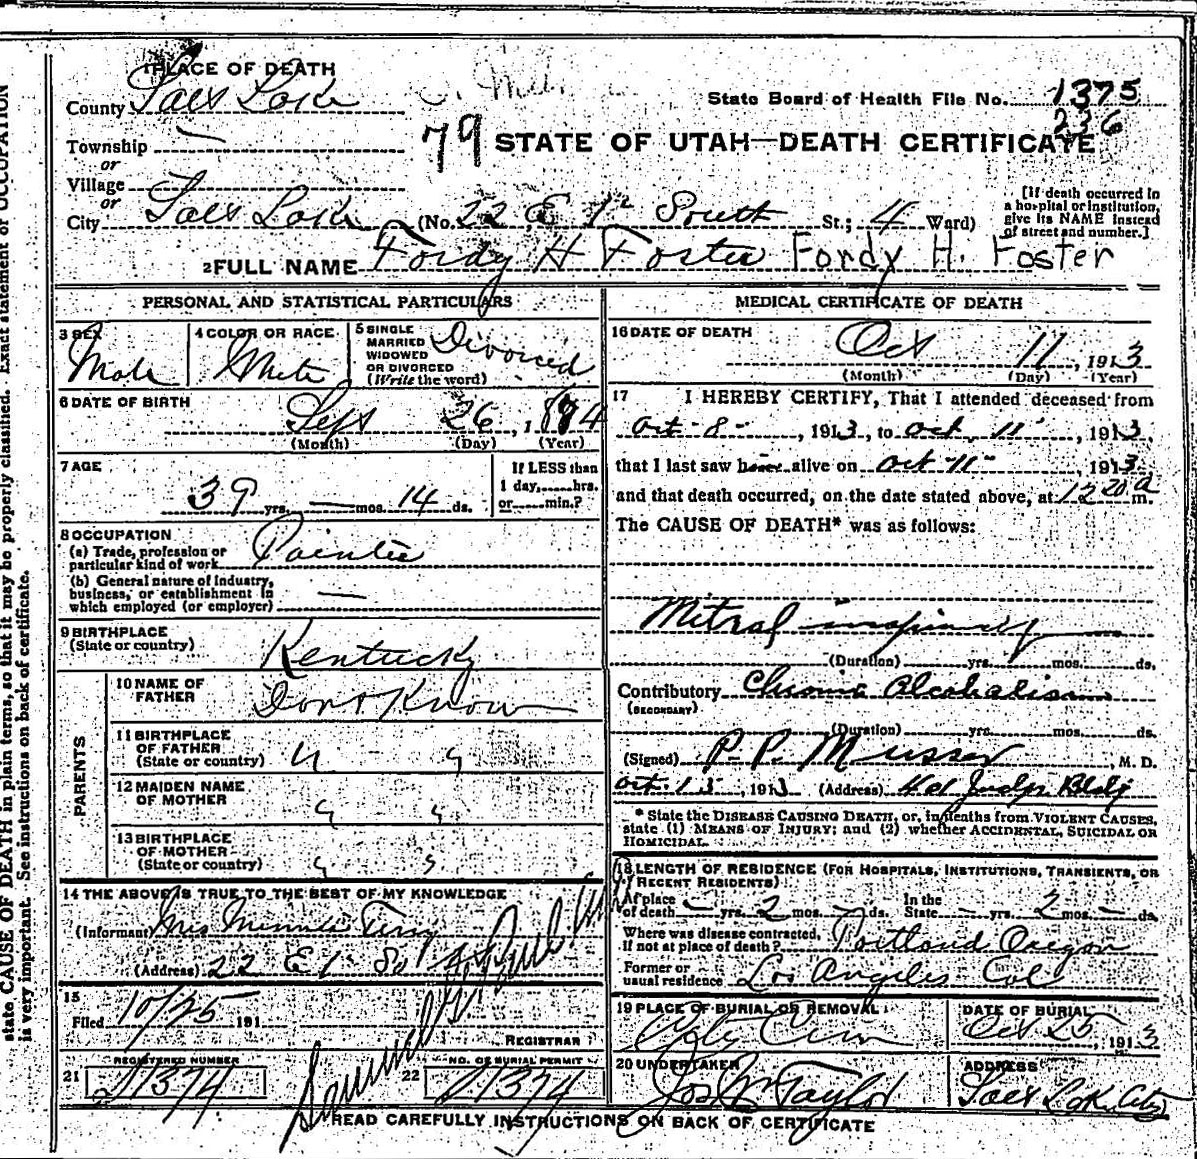 state CAUSE OF DEATH in plain terms, so that it may be properly classified. Exact statement of OCCUPATION
is very important. See instructions on back of certificate.
1 PLACE OF DEATH
County Salt Lake
State Board of Health File No. 1375
236
Township —
79 STATE OF UTAH—DEATH CERTIFICATE
or
Village
or
City Salt Lake (No. 22 E 1st South St.; 4 Ward)
[If death occurred in
a hospital or institution,
give its NAME instead
of street and number.]
2 FULL NAME Fordy H Foster Fordy H. Foster
PERSONAL AND STATISTICAL PARTICULARS
3 SEX Male
4 COLOR OR RACE White
5 SINGLE
MARRIED
WIDOWED
OR DIVORCED
(Write the word) Divorced
6 DATE OF BIRTH
Sept 26, 1874
(Month) (Day) (Year)
7 AGE
39 yrs. — mos. 14 ds.
If LESS than
1 day,......hrs.
or......min.?
8 OCCUPATION
(a) Trade, profession or
particular kind of work Painter
(b) General nature of industry,
business, or establishment in
which employed (or employer) —
9 BIRTHPLACE
(State or country) Kentucky
PARENTS
10 NAME OF
FATHER Dont Know
11 BIRTHPLACE
OF FATHER
(State or country) " "
12 MAIDEN NAME
OF MOTHER " "
13 BIRTHPLACE
OF MOTHER
(State or country) " "
14 THE ABOVE IS TRUE TO THE BEST OF MY KNOWLEDGE
(Informant) Mrs Minnie
(Address) 22 E 1st So
15
Filed 10/25 191
REGISTRAR
REGISTERED NUMBER
21 1374
NO. OF BURIAL PERMIT
22 1374
MEDICAL CERTIFICATE OF DEATH
16 DATE OF DEATH
Oct 11, 1913
(Month) (Day) (Year)
17 I HEREBY CERTIFY, That I attended deceased from
Oct-8-, 1913, to Oct 11, 1913,
that I last saw h alive on Oct-11-, 1913,
and that death occurred, on the date stated above, at 12 20 a m.
The CAUSE OF DEATH* was as follows:
Mitral
(Duration) yrs. mos. ds.
Contributory Chronic Alcoholism
(SECONDARY)
(Duration) yrs. mos. ds.
(Signed) P. P. Musser, M. D.
Oct. 13, 1913 (Address) Judge Bldg
* State the DISEASE CAUSING DEATH, or, in deaths from VIOLENT CAUSES,
state (1) MEANS OF INJURY; and (2) whether ACCIDENTAL, SUICIDAL OR
HOMICIDAL.
18 LENGTH OF RESIDENCE (FOR HOSPITALS, INSTITUTIONS, TRANSIENTS, OR
RECENT RESIDENTS)
At place
of death — yrs. 2 mos. — ds.
In the
State — yrs. 2 mos. — ds.
Where was disease contracted,
if not at place of death? Portland Oregon
Former or
usual residence Los Angeles Cal
19 PLACE OF BURIAL OR REMOVAL
City Cem
DATE OF BURIAL
Oct 25, 1913
20 UNDERTAKER
Jos Wm Taylor
ADDRESS
Salt Lake City
READ CAREFULLY INSTRUCTIONS ON BACK OF CERTIFICATE